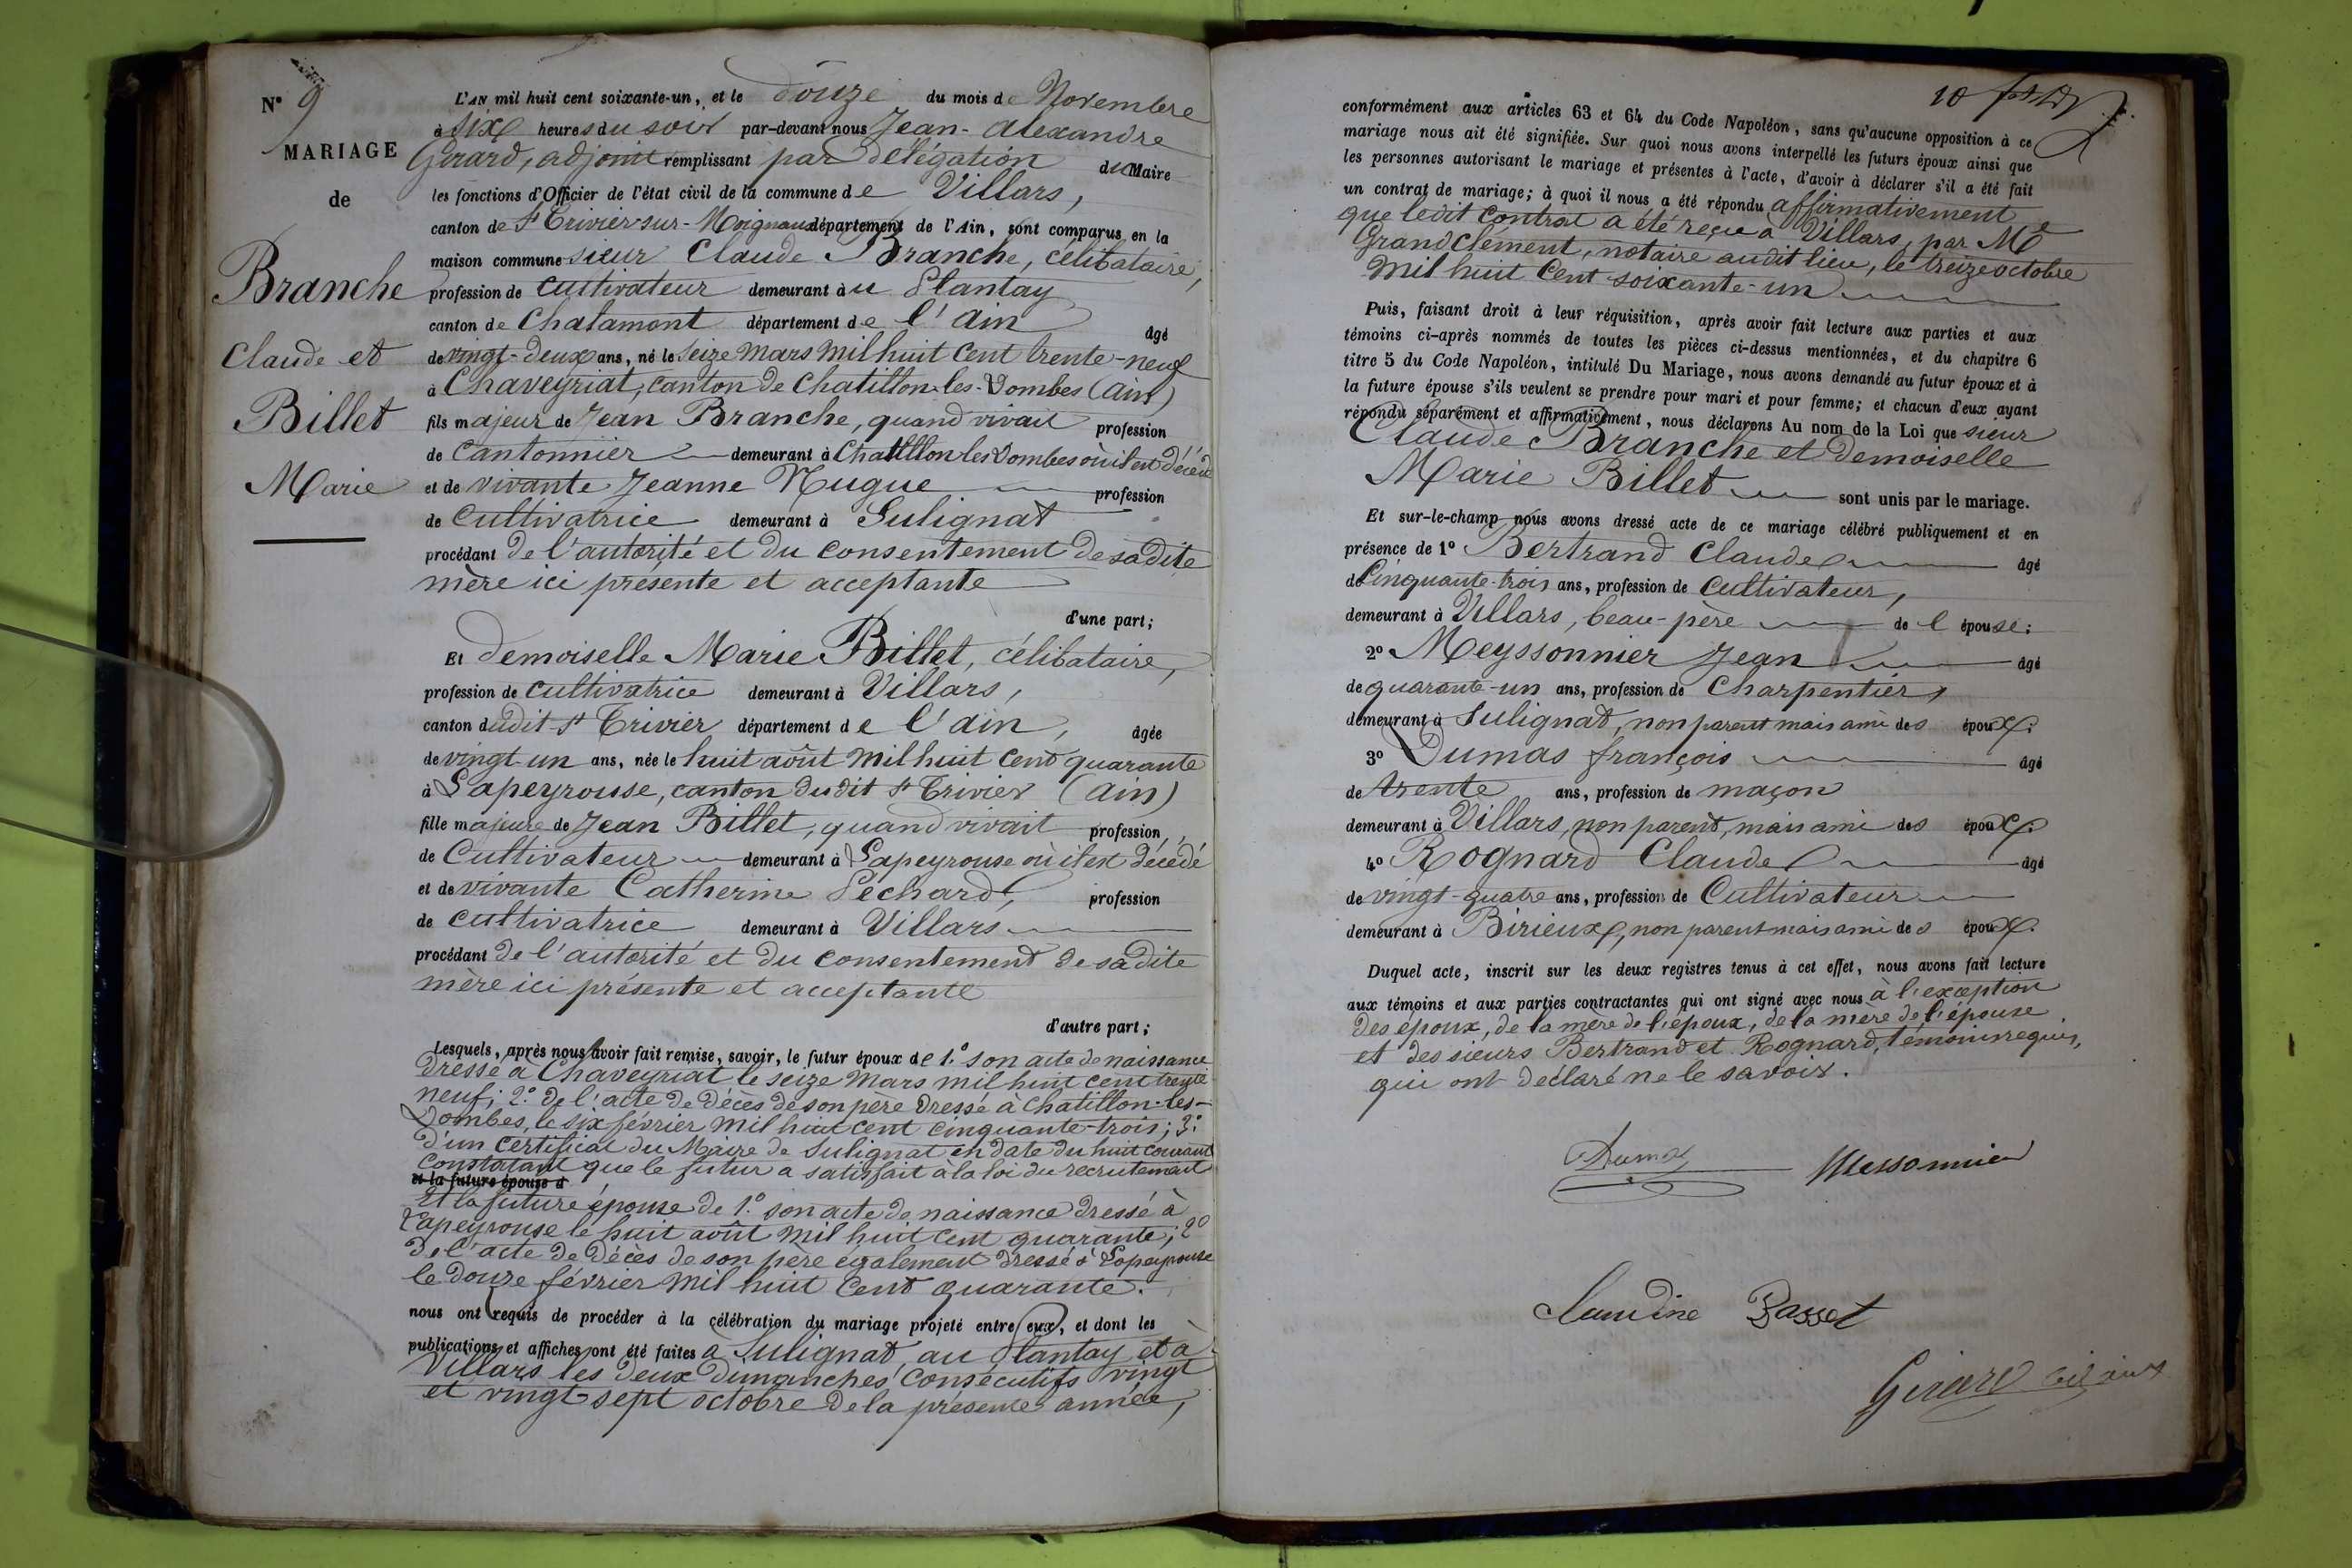 N° 9
MARIAGE
de
Branche
Claude et
Billet
Marie
L'AN mil huit cent soixante-un, et le douze du mois de Novembre
à six heures du soir par-devant nous Jean-Alexandre
Girard, adjoint remplissant par délégation du Maire
les fonctions d'Officier de l'état civil de la commune de Villars,
canton de St Trivier-sur-Moignans département de l'Ain, sont comparus en la
maison commune sieur Claude Branche, célibataire,
profession de cultivateur demeurant au Plantay
canton de Chalamont département de l'Ain âgé
de vingt-deux ans, né le seize Mars mil huit cent trente-neuf
à Chaveyriat, canton de Chatillon-les-Dombes (Ain)
fils majeur de Jean Branche, quand vivait profession
de Cantonnier demeurant à Chatillon les Dombes où il est décédé
et de vivante Jeanne Nugue profession
de cultivatrice demeurant à Sulignat
procédant de l'autorité et du consentement de sadite
mère ici présente et acceptante
d'une part;
Et demoiselle Marie Billet, célibataire,
profession de cultivatrice demeurant à Villars,
canton dudit St Trivier département de l'Ain, âgée
de vingt-un ans, née le huit août mil huit cent quarante
à Lapeyrouse, canton dudit St Trivier (Ain)
fille majeure de Jean Billet, quand vivait profession
de Cultivateur demeurant à Lapeyrouse où il est décédé
et de vivante Catherine Péchard, profession
de cultivatrice demeurant à Villars
procédant de l'autorité et du consentement de sadite
mère ici présente et acceptante
d'autre part;
Lesquels, après nous avoir fait remise, savoir, le futur époux de 1.° son acte de naissance
dressé à Chaveyriat le seize Mars mil huit cent trente
neuf; 2.° de l'acte de décès de son père dressé à Chatillon-les-
Dombes, le six février mil huit cent cinquante-trois; 3.°
d'un certificat du Maire de Sulignat en date du huit courant
constatant que le futur a satisfait à la loi du recrutement
et la future épouse d
Et la future épouse de 1.° son acte de naissance dressé à
Lapeyrouse le huit août mil huit cent quarante; 2°
de l'acte de décès de son père également dressé à Lapeyrouse
le douze février mil huit cent quarante.
nous ont requis de procéder à la célébration du mariage projeté entre eux, et dont les
publications et affiches ont été faites à Sulignat, au Plantay et à
Villars les deux dimanches consécutifs vingt
et vingt-sept octobre de la présente année,
10
conformément aux articles 63 et 64 du Code Napoléon, sans qu'aucune opposition à ce
mariage nous ait été signifiée. Sur quoi nous avons interpellé les futurs époux ainsi que
les personnes autorisant le mariage et présentes à l'acte, d'avoir à déclarer s'il a été fait
un contrat de mariage; à quoi il nous a été répondu affirmativement
que ledit contrat a été reçu à Villars, par Me
Grandclément, notaire audit lieu, le treize octobre
mil huit cent soixante-un
Puis, faisant droit à leur réquisition, après avoir fait lecture aux parties et aux
témoins ci-après nommés de toutes les pièces ci-dessus mentionnées, et du chapitre 6
titre 5 du Code Napoléon, intitulé Du Mariage, nous avons demandé au futur époux et à
la future épouse s'ils veulent se prendre pour mari et pour femme; et chacun d'eux ayant
répondu séparément et affirmativement, nous déclarons Au nom de la Loi que sieur
Claude Branche et demoiselle
Marie Billet sont unis par le mariage.
Et sur-le-champ nous avons dressé acte de ce mariage célébré publiquement et en
présence de 1° Bertrand Claude âgé
de Cinquante-trois ans, profession de cultivateur,
demeurant à Villars, beau-père de l'épouse;
2° Meyssonnier Jean âgé
de quarante-un ans, profession de Charpentier,
demeurant à Sulignat, non parent mais ami des époux;
3° Dumas françois âgé
de trente ans, profession de maçon
demeurant à Villars, non parent, mais ami des époux;
4° Rognard Claude âgé
de vingt-quatre ans, profession de Cultivateur
demeurant à Birieux, non parent mais ami des époux.
Duquel acte, inscrit sur les deux registres tenus à cet effet, nous avons fait lecture
aux témoins et aux parties contractantes qui ont signé avec nous à l'exception
des époux, de la mère de l'époux, de la mère de l'épouse
et des sieurs Bertrand et Rognard, témoins requis,
qui ont déclaré ne le savoir.
Dumas Messonnier
Claudine Basset
Girard